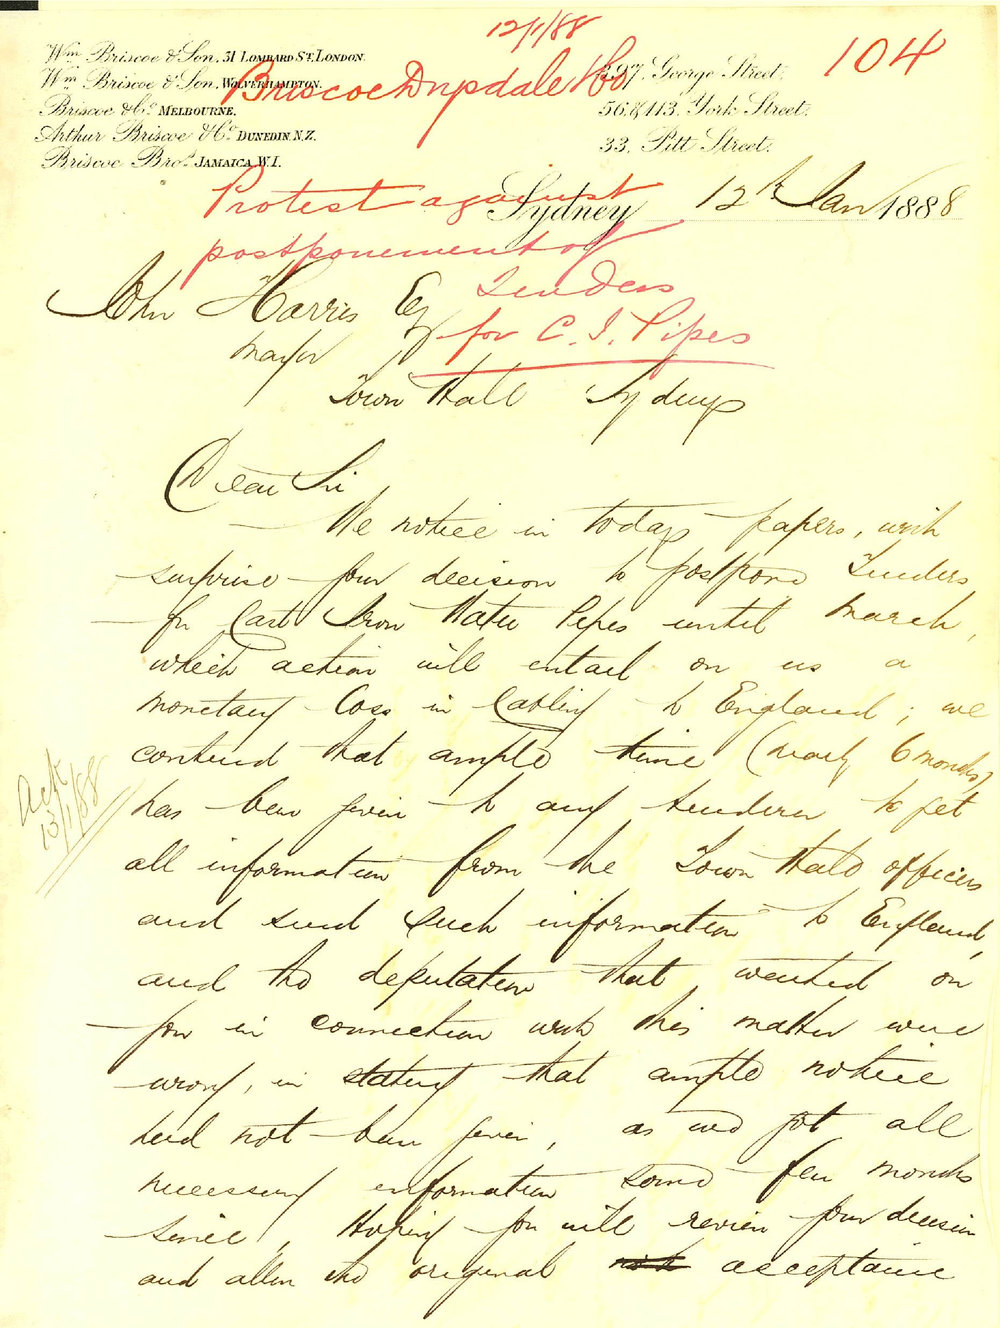 12/1/88
104
Wm Briscoe & Son, 31 LOMBARD ST, LONDON.
Wm Briscoe & Son, WOLVERHAMPTON.
Briscoe & Co MELBOURNE.
Arthur Briscoe & Co DUNEDIN. N.Z.
Briscoe Bros JAMAICA, W.I.
Briscoe Drysdale & Co
397, George Street.
56, & 113, York Street.
33, Pitt Street.
Sydney 12th Jan 1888
Protest against
postponement of
Tenders
for C. I. Pipes
John Harris Eq
Mayor
Town Hall Sydney
Dear Sir
We notice in todays papers, with
surprise your decision to postpone Tenders
for Cast Iron Water Pipes until March,
which action will entail on us a
monetary loss in Cabling to England; we
contend that ample time (nearly 6 months)
has been given to any tenderer to get
all information from the Town Hall officers
and send such information to England,
and the deputation that waited on
you in connection with this matter were
wrong, in stating that ample notice
had not been given, as we got all
necessary information some few months
since, Hoping you will review your decision
and allow the original acceptance
Ack
13/1/88